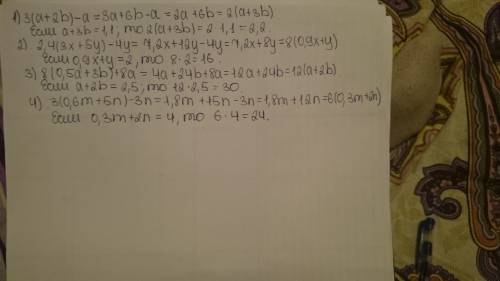 1) 3(a+2b)-a=3a+6b-a=2a+6b=2(a+3b)
Если a+3b=1,1, то 2(a+3b)=2·1,1=2,2.
2). 2,4(3x+5y)-4y=7,2x+12y-4y=7,2x+8y=8(0,9x+y)
Если 0,9x+y=2, то 8·2=16.
3) 8(0,5a+3b)+8a=4a+24b+8a=12a+24b=12(a+2b)
Если a+2b=2,5, то 12·2,5=30.
4) 3(0,6m+5n)-3n=1,8m+15n-3n=1,8m+12n=6(0,3m+2n)
Если 0,3m+2n=4, то 6·4=24.